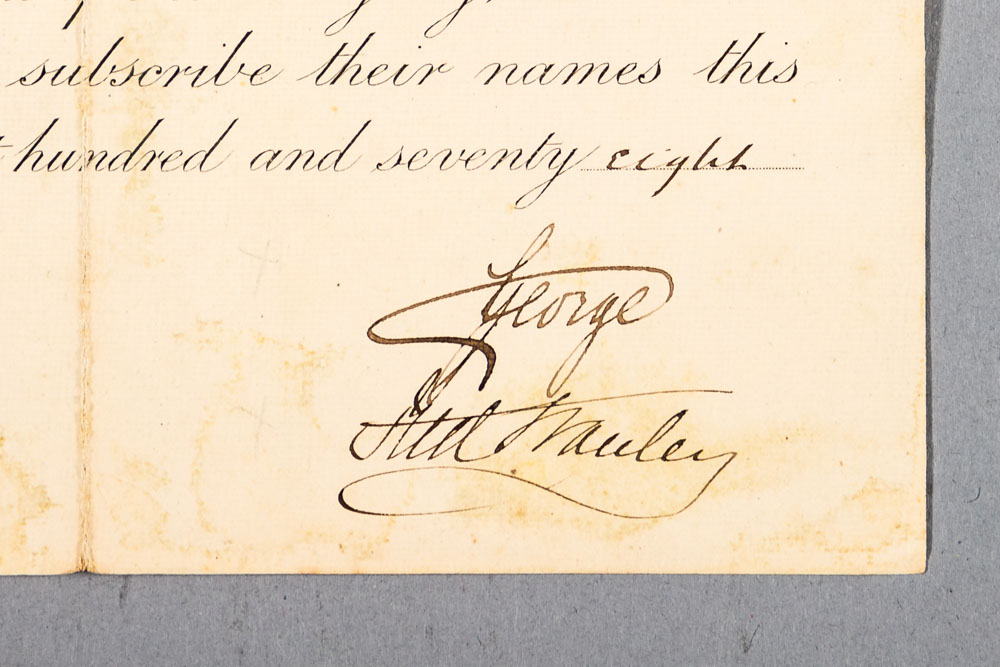 subscribe their names this
hundred and seventy eight
George